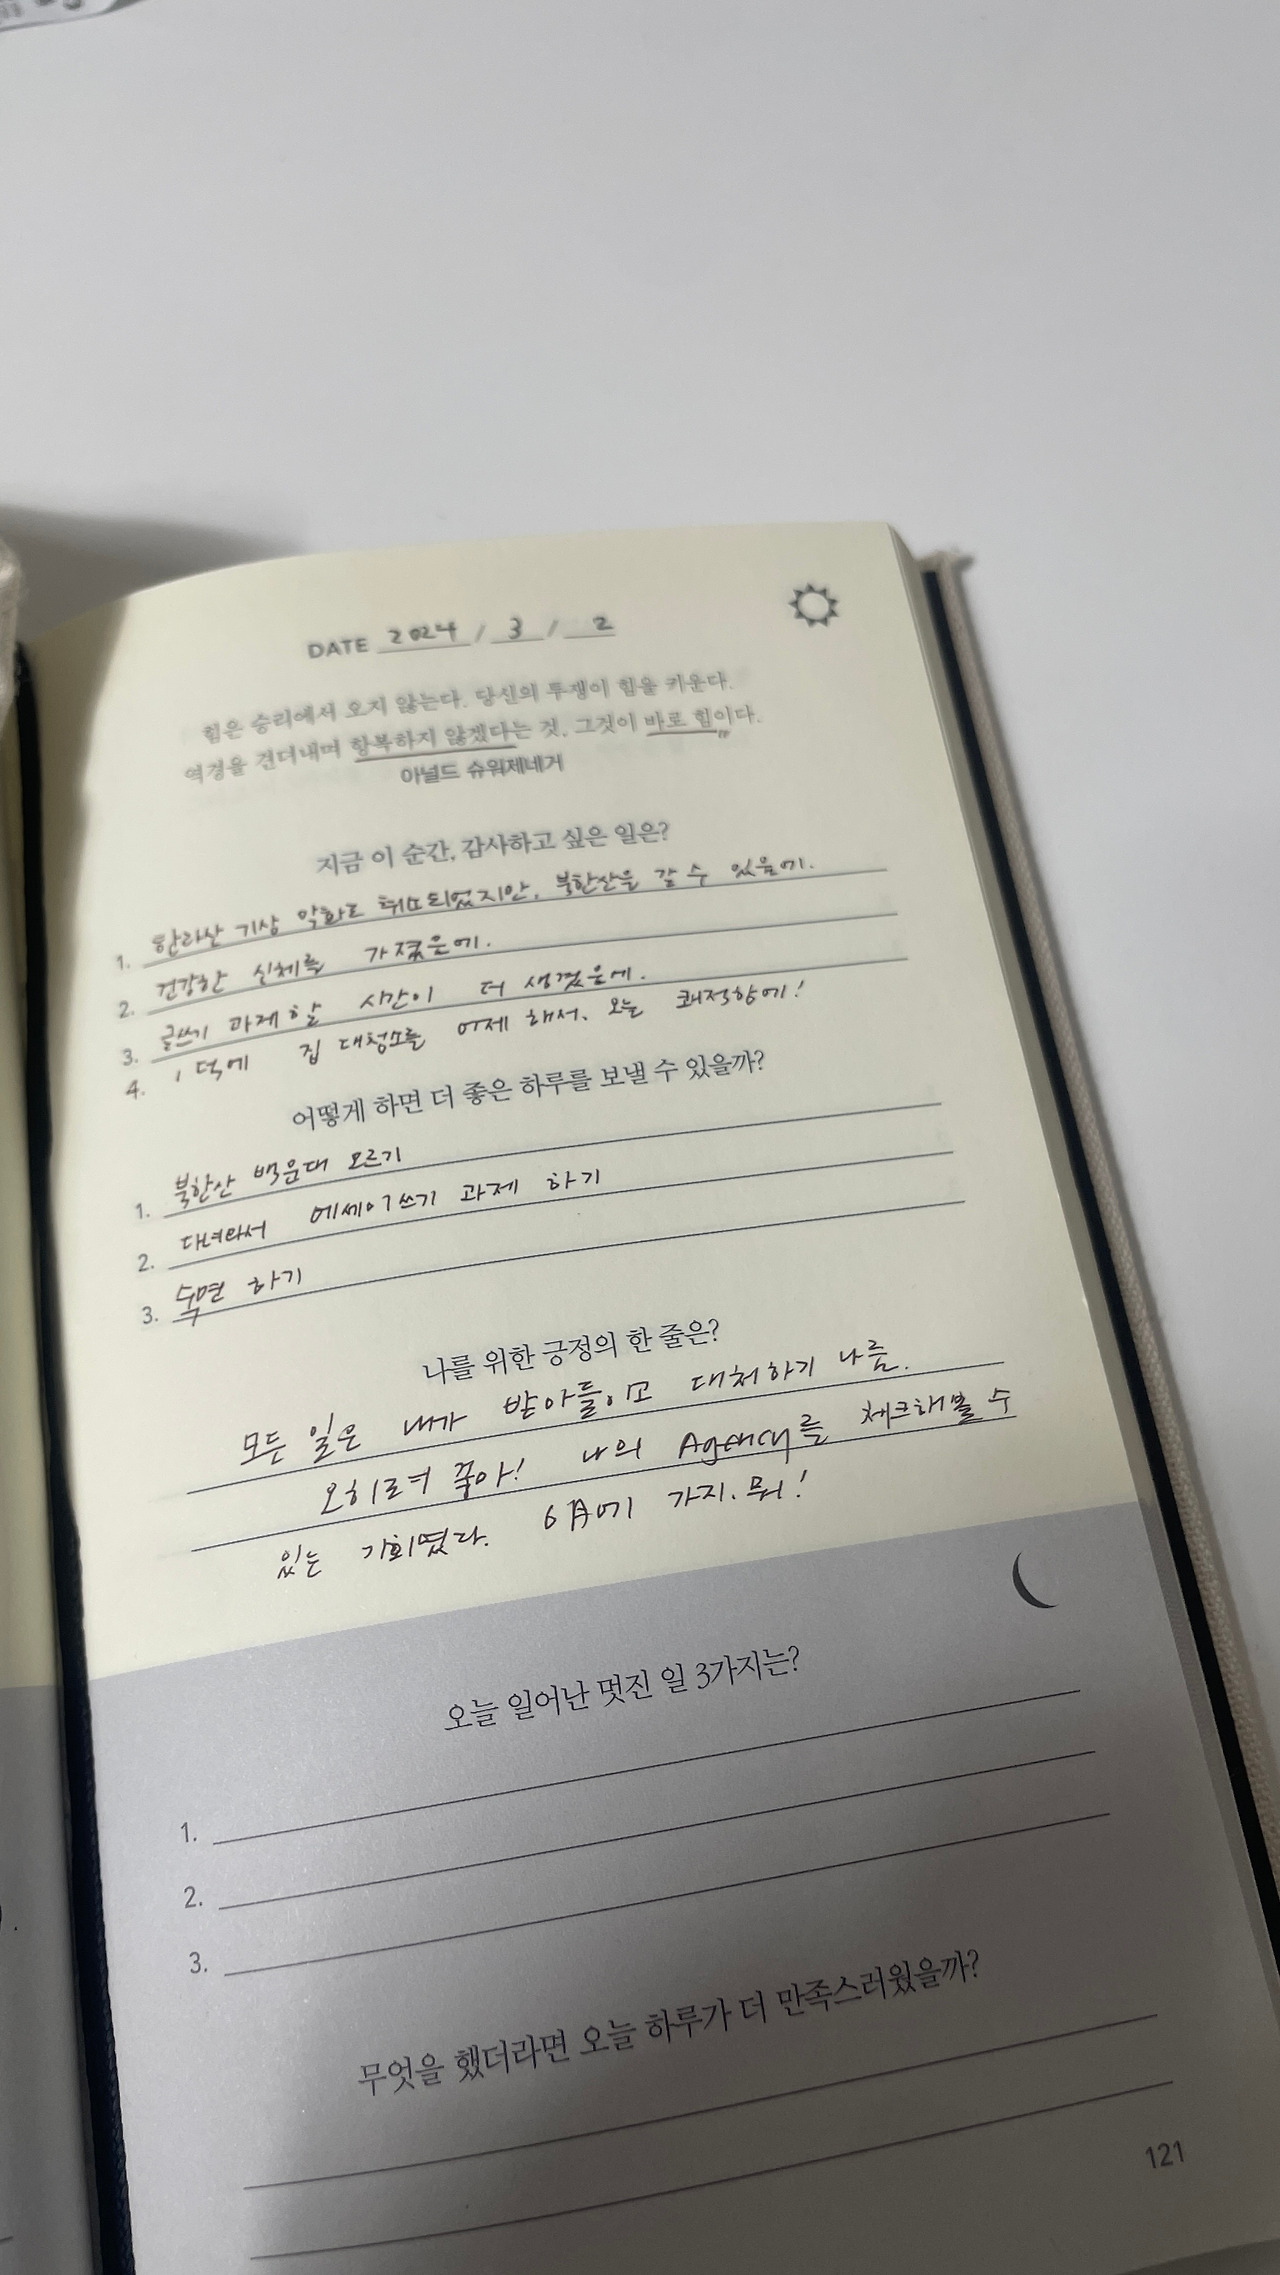 DATE 2024 / 3 / 2
힘은 승리에서 오지 않는다. 당신의 투쟁이 힘을 키운다.
역경을 견뎌내며 항복하지 않겠다는 것, 그것이 바로 힘이다.
아널드 슈워제네거
지금 이 순간, 감사하고 싶은 일은?
1. 한라산 기상 악화로 취소되었지만, 북한산을 갈 수 있음에.
2. 건강한 신체를 가졌음에.
3. 글쓰기 과제 할 시간이 더 생겼음에.
4. 덕에 집 대청소를 어제 해서, 오늘 쾌적함에!
어떻게 하면 더 좋은 하루를 보낼 수 있을까?
1. 북한산 백운대 오르기
2. 다녀와서 에세이쓰기 과제 하기
3. 숙면 하기
나를 위한 긍정의 한 줄은?
모든 일은 내가 받아들이고 대처하기 나름.
오히려 좋아! 나의 Agency를 체크해볼 수
있는 기회였다. 6월에 가지. 뭐!
오늘 일어난 멋진 일 3가지는?
1.
2.
3.
무엇을 했더라면 오늘 하루가 더 만족스러웠을까?
121